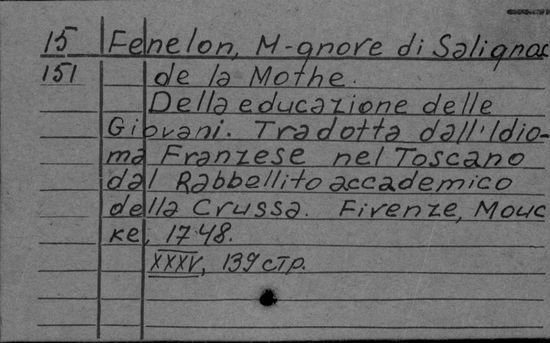 15 Fenelon, M-gnore di Salignac
151 de la Mothe.
Della educazione delle
Giovani. Tradotta dall'Idio-
ma Franzese nel Toscano
dal Rabbellito accademico
della Crussa. Firenze, Mouc
ke, 1748.
XXXV, 139 стр.